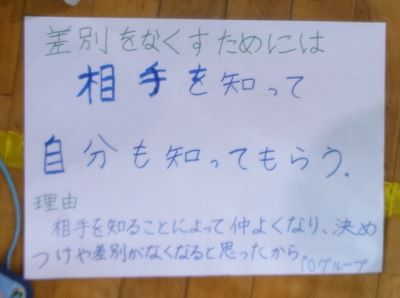 差別をなくすためには
相手を知って
自分も知ってもらう.
理由
相手を知ることによって仲よくなり、決め
つけや差別がなくなると思ったから。
10グループ